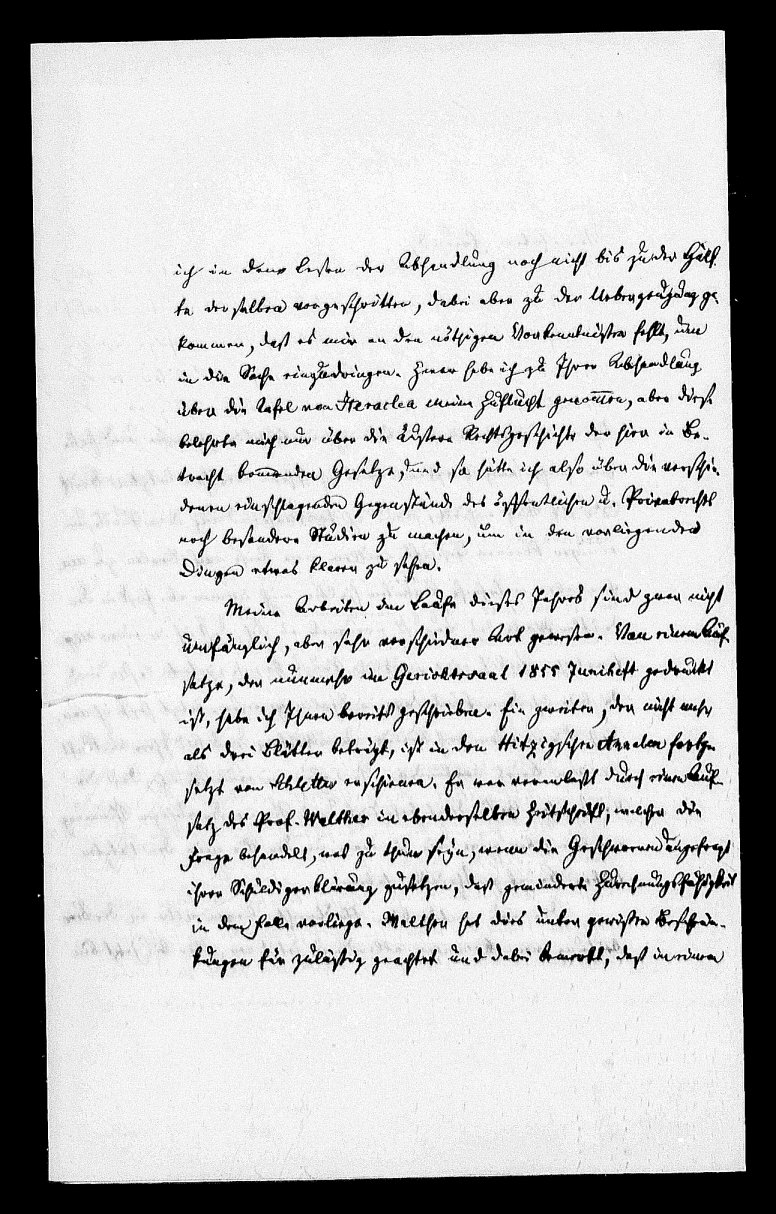 ich in dem Lesen der Abhandlung noch nicht bis zu der Hälf-
te derselben vorgeschritten, dabei aber zu der Ueberzeugung ge-
kommen, daß es mir an den nöthigen Vorkenntnissen fehlt, um
in die Sache einzudringen. Zwar habe ich zu Ihrer Abhandlung
über die Tafel von Heraclea meine Zuflucht genommen, aber diese
belehrte mich nur über die äußere Rechtsgeschichte der hier in Be-
tracht kommenden Gesetze, und so hätte ich also über die verschie-
denen einschlagenden Gegenstände des öffentlichen u. Privatrechts
noch besondere Studien zu machen, um in den vorliegenden
Dingen etwas klarer zu sehen.
Meine Arbeiten im Laufe dieses Jahres sind zwar nicht
umfänglich, aber sehr verschiedner Art gewesen. Von einem Auf-
satze, der nunmehr im Gerichtssaal 1855 Juniheft gedruckt
ist, habe ich Ihnen bereits geschrieben. Ein zweiter, der nicht mehr
als drei Blätter beträgt, ist in den Hitzigschen Annalen fortge-
setzt von Schletter erschienen. Er war veranlaßt durch einen Auf-
satz des Prof. Walther in ebenderselben Zeitschrift, welcher die
Frage behandelt, was zu thun sein, wenn die Geschworenen ungefragt
ihrer Schuldigerklärung zusetzen, daß geminderte Zurechnungsfähigkeit
in dem Falle vorliege. Walther hat dies unter gewissen Beschrän-
kungen für zulässig geachtet und dabei bemerkt, daß in einem